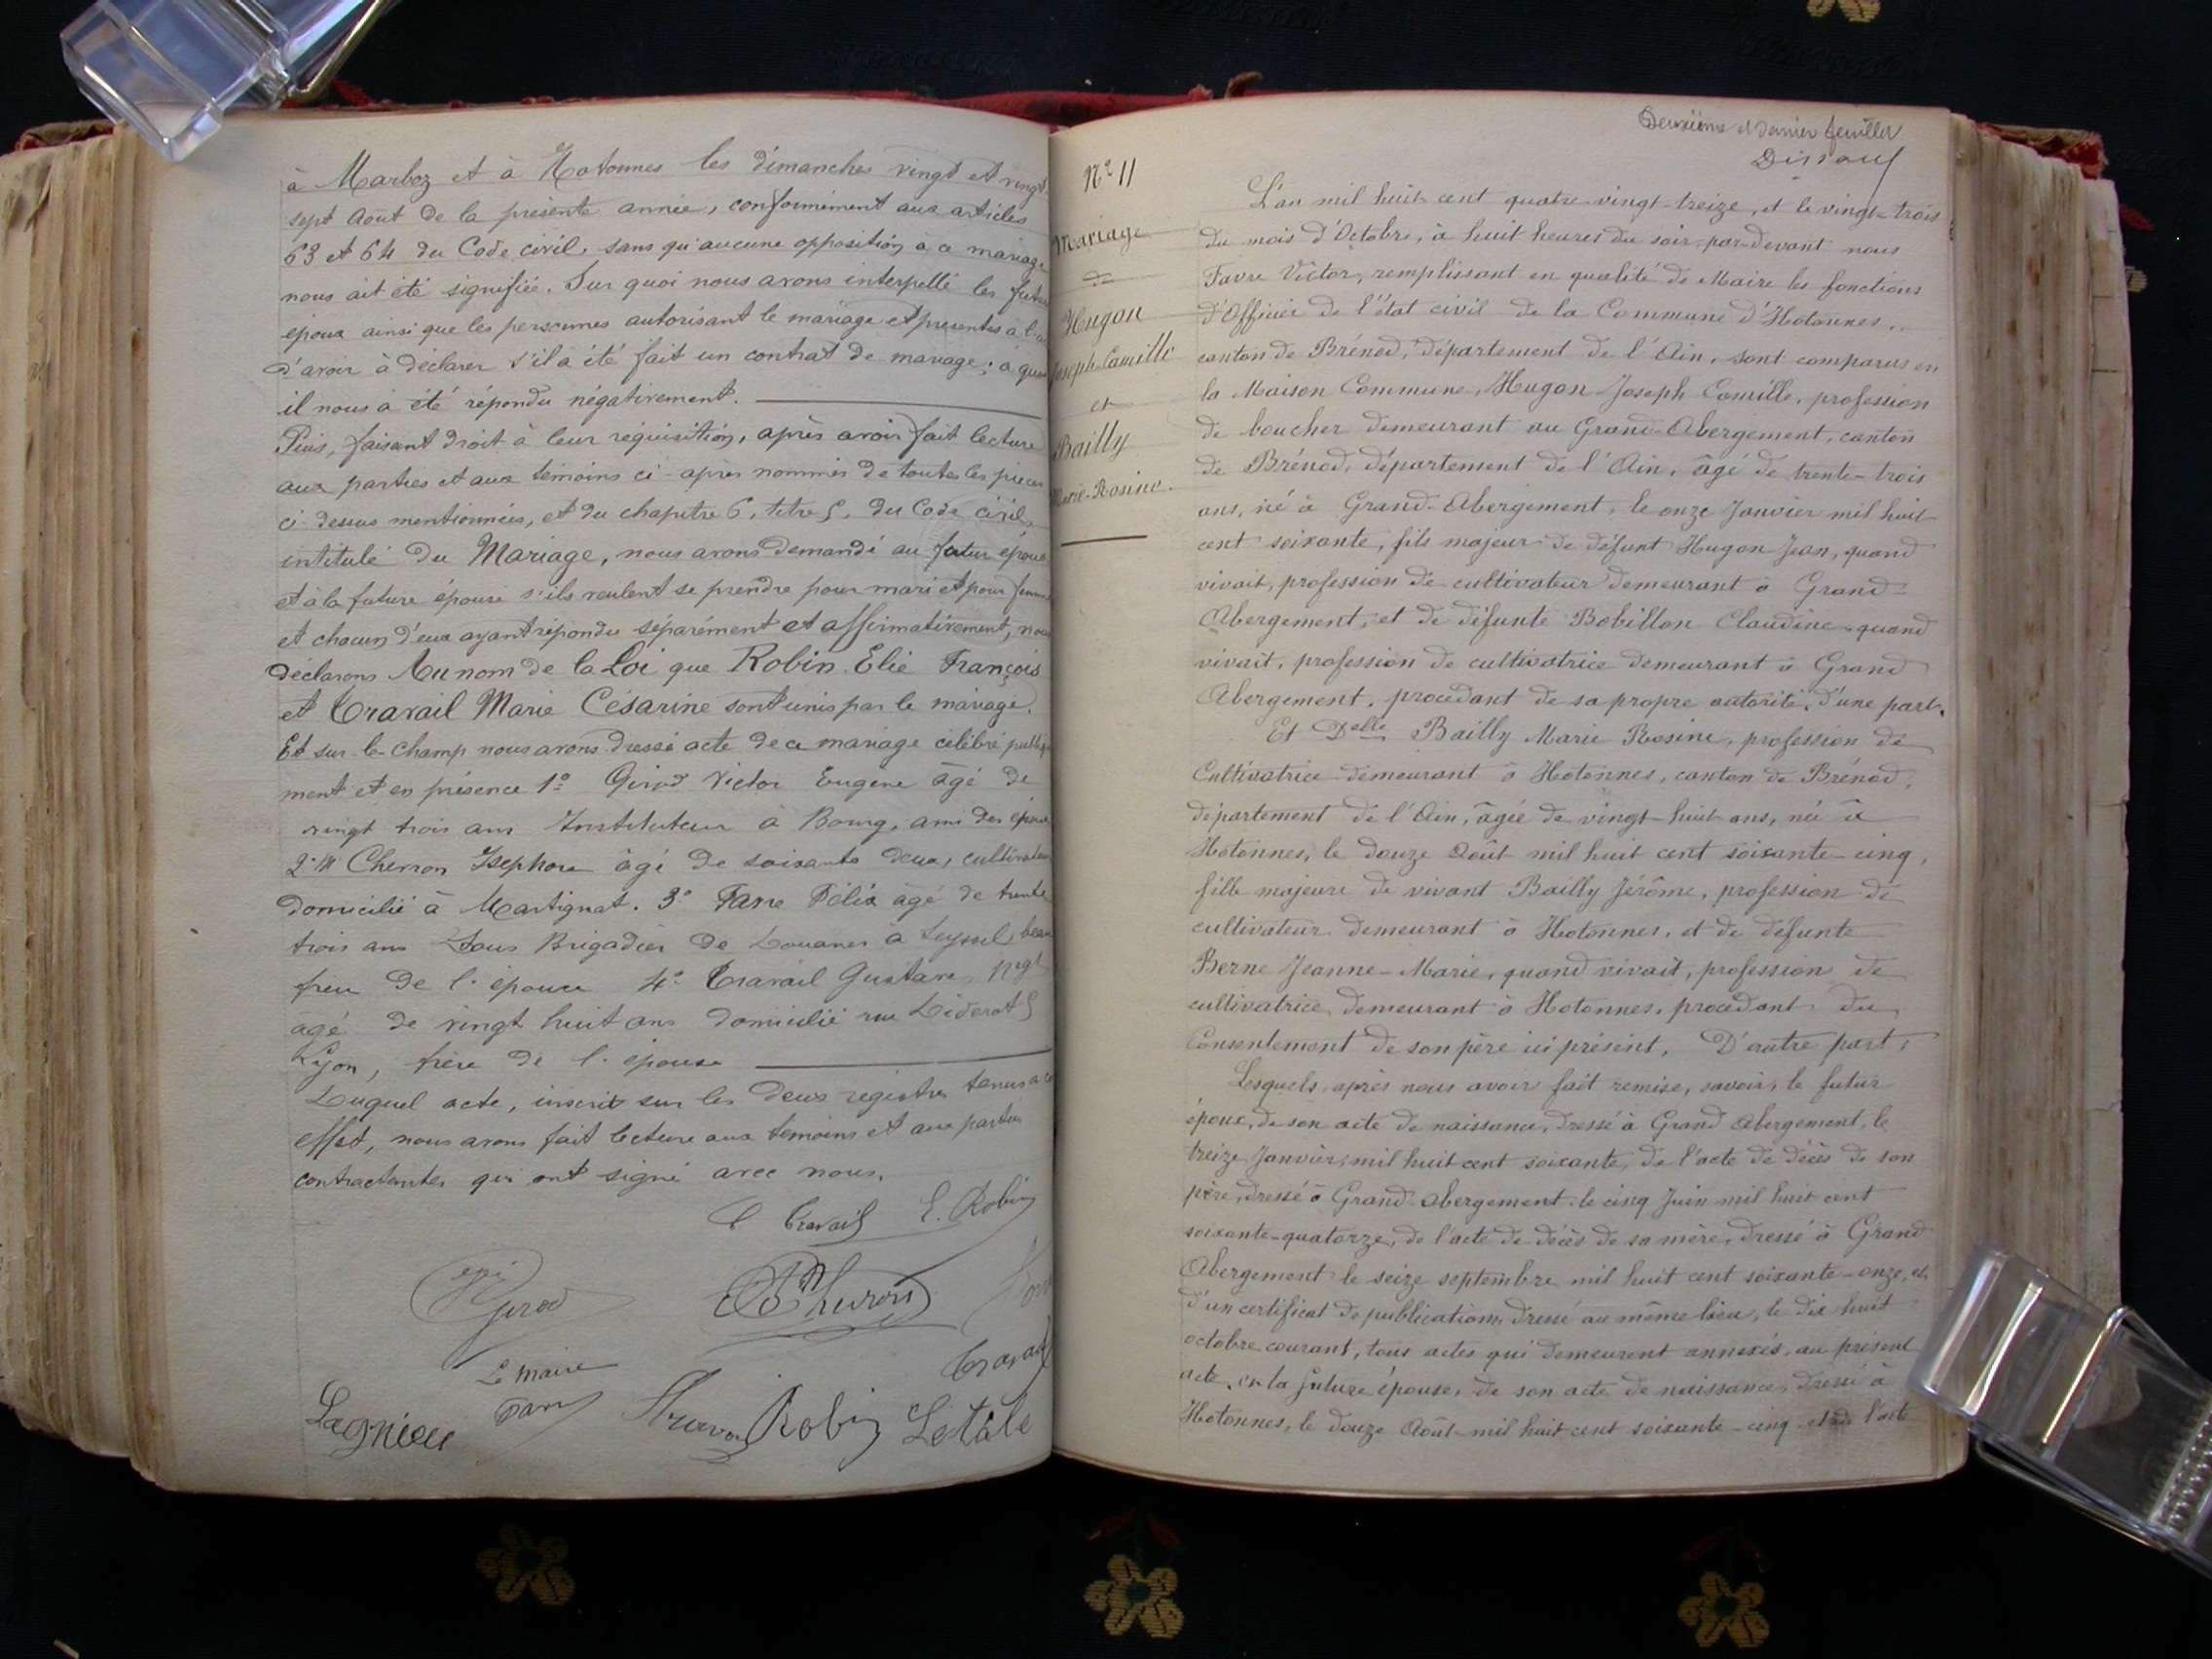 à Marboz et à Hotonnes les dimanches vingt et vingt
sept Août de la présente année, conformément aux articles
63 et 64 du Code civil, sans qu'aucune opposition à ce mariage
nous ait été signifiée. Sur quoi nous avons interpellé les futurs
époux ainsi que les personnes autorisant le mariage et présentes à l'
d'avoir à déclarer s'il a été fait un contrat de mariage; à quoi
il nous a été répondu négativement.
Puis, faisant droit à leur réquisition, après avoir fait lecture
aux parties et aux témoins ci-après nommés de toutes les pièces
ci-dessus mentionnées, et du chapitre 6, titre 5, du Code civil,
intitulé du Mariage, nous avons demandé au futur époux
et à la future épouse s'ils veulent se prendre pour mari et pour femme
et chacun d'eux ayant répondu séparément et affirmativement, nous
déclarons Au nom de la Loi que Robin Elie François
et Travail Marie Césarine sont unis par le mariage.
Et sur-le-champ nous avons dressé acte de ce mariage célébré publique
ment et en présence 1º Girod Victor Eugène âgé de
vingt trois ans Instituteur à Bourg, ami des époux
2º Mr âgé de soixante deux, cultivateur
domicilié à Martignat. 3º Favre Félix âgé de trente
trois ans Sous Brigadier de Douanes à Seyssel, beau
frère de l'épouse 4º Travail Gustave, Négt
âgé de vingt huit ans domicilié rue Diderot 5
Lyon, frère de l'épouse
Duquel acte, inscrit sur les deux registres tenus à cet
effet, nous avons fait lecture aux témoins et aux parties
contractantes qui ont signé avec nous.
C Travail E. Robin
Girod
Le Maire
Favre
Travail
Lagnieu
Robin Letale
Deuxième et dernier feuillet
Nº 11
Mariage
de
Hugon
Joseph Camille
et
Bailly
Marie-Rosine.
L'an mil huit cent quatre-vingt-treize, et le vingt-trois
du mois d'Octobre, à huit heures du soir, par-devant nous
Favre Victor, remplissant en qualité de Maire les fonctions
d'Officier de l'état civil de la Commune d'Hotonnes,
canton de Brénod, département de l'Ain, sont comparus en
la Maison Commune, Hugon Joseph Camille, profession
de boucher demeurant au Grand-Abergement, canton
de Brénod, département de l'Ain, âgé de trente-trois
ans, né à Grand-Abergement, le onze Janvier mil huit
cent soixante, fils majeur de défunt Hugon Jean, quand
vivait, profession de cultivateur demeurant à Grand-
Abergement, et de défunte Bobillon Claudine, quand
vivait, profession de cultivatrice demeurant à Grand
Abergement, procédant de sa propre autorité, d'une part.
Et Delle Bailly Marie Rosine, profession de
Cultivatrice demeurant à Hotonnes, canton de Brénod,
département de l'Ain, âgée de vingt-huit ans, née à
Hotonnes, le douze Août mil huit cent soixante-cinq,
fille majeure de vivant Bailly Jérôme, profession de
cultivateur demeurant à Hotonnes, et de défunte
Berne Jeanne-Marie, quand vivait, profession de
cultivatrice demeurant à Hotonnes, procédant du
Consentement de son père ici présent, D'autre part;
Lesquels après nous avoir fait remise, savoir, le futur
époux, de son acte de naissance, dressé à Grand Abergement, le
treize Janvier mil huit cent soixante, de l'acte de décès de son
père, dressé à Grand-Abergement le cinq Juin mil huit cent
soixante-quatorze, de l'acte de décès de sa mère, dressé à Grand
Abergement le seize septembre mil huit cent soixante-onze, et
d'un certificat de publications dressé au même lieu, le dix huit
octobre courant, tous actes qui demeurent annexés au présent
acte, et la future épouse, de son acte de naissance, dressé à
Hotonnes, le douze Août mil huit cent soixante-cinq et de l'acte